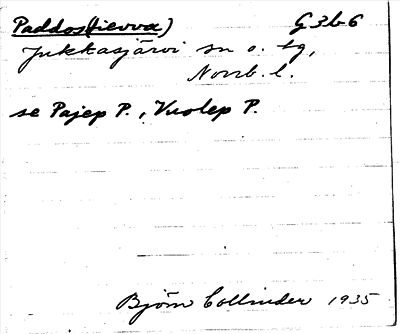 Paddos(tievva) G 3b6
Jukkasjärvi sn o. tg,
Norrb. l.
se Pajep P., Vuolep P.
Björn Collinder 1935